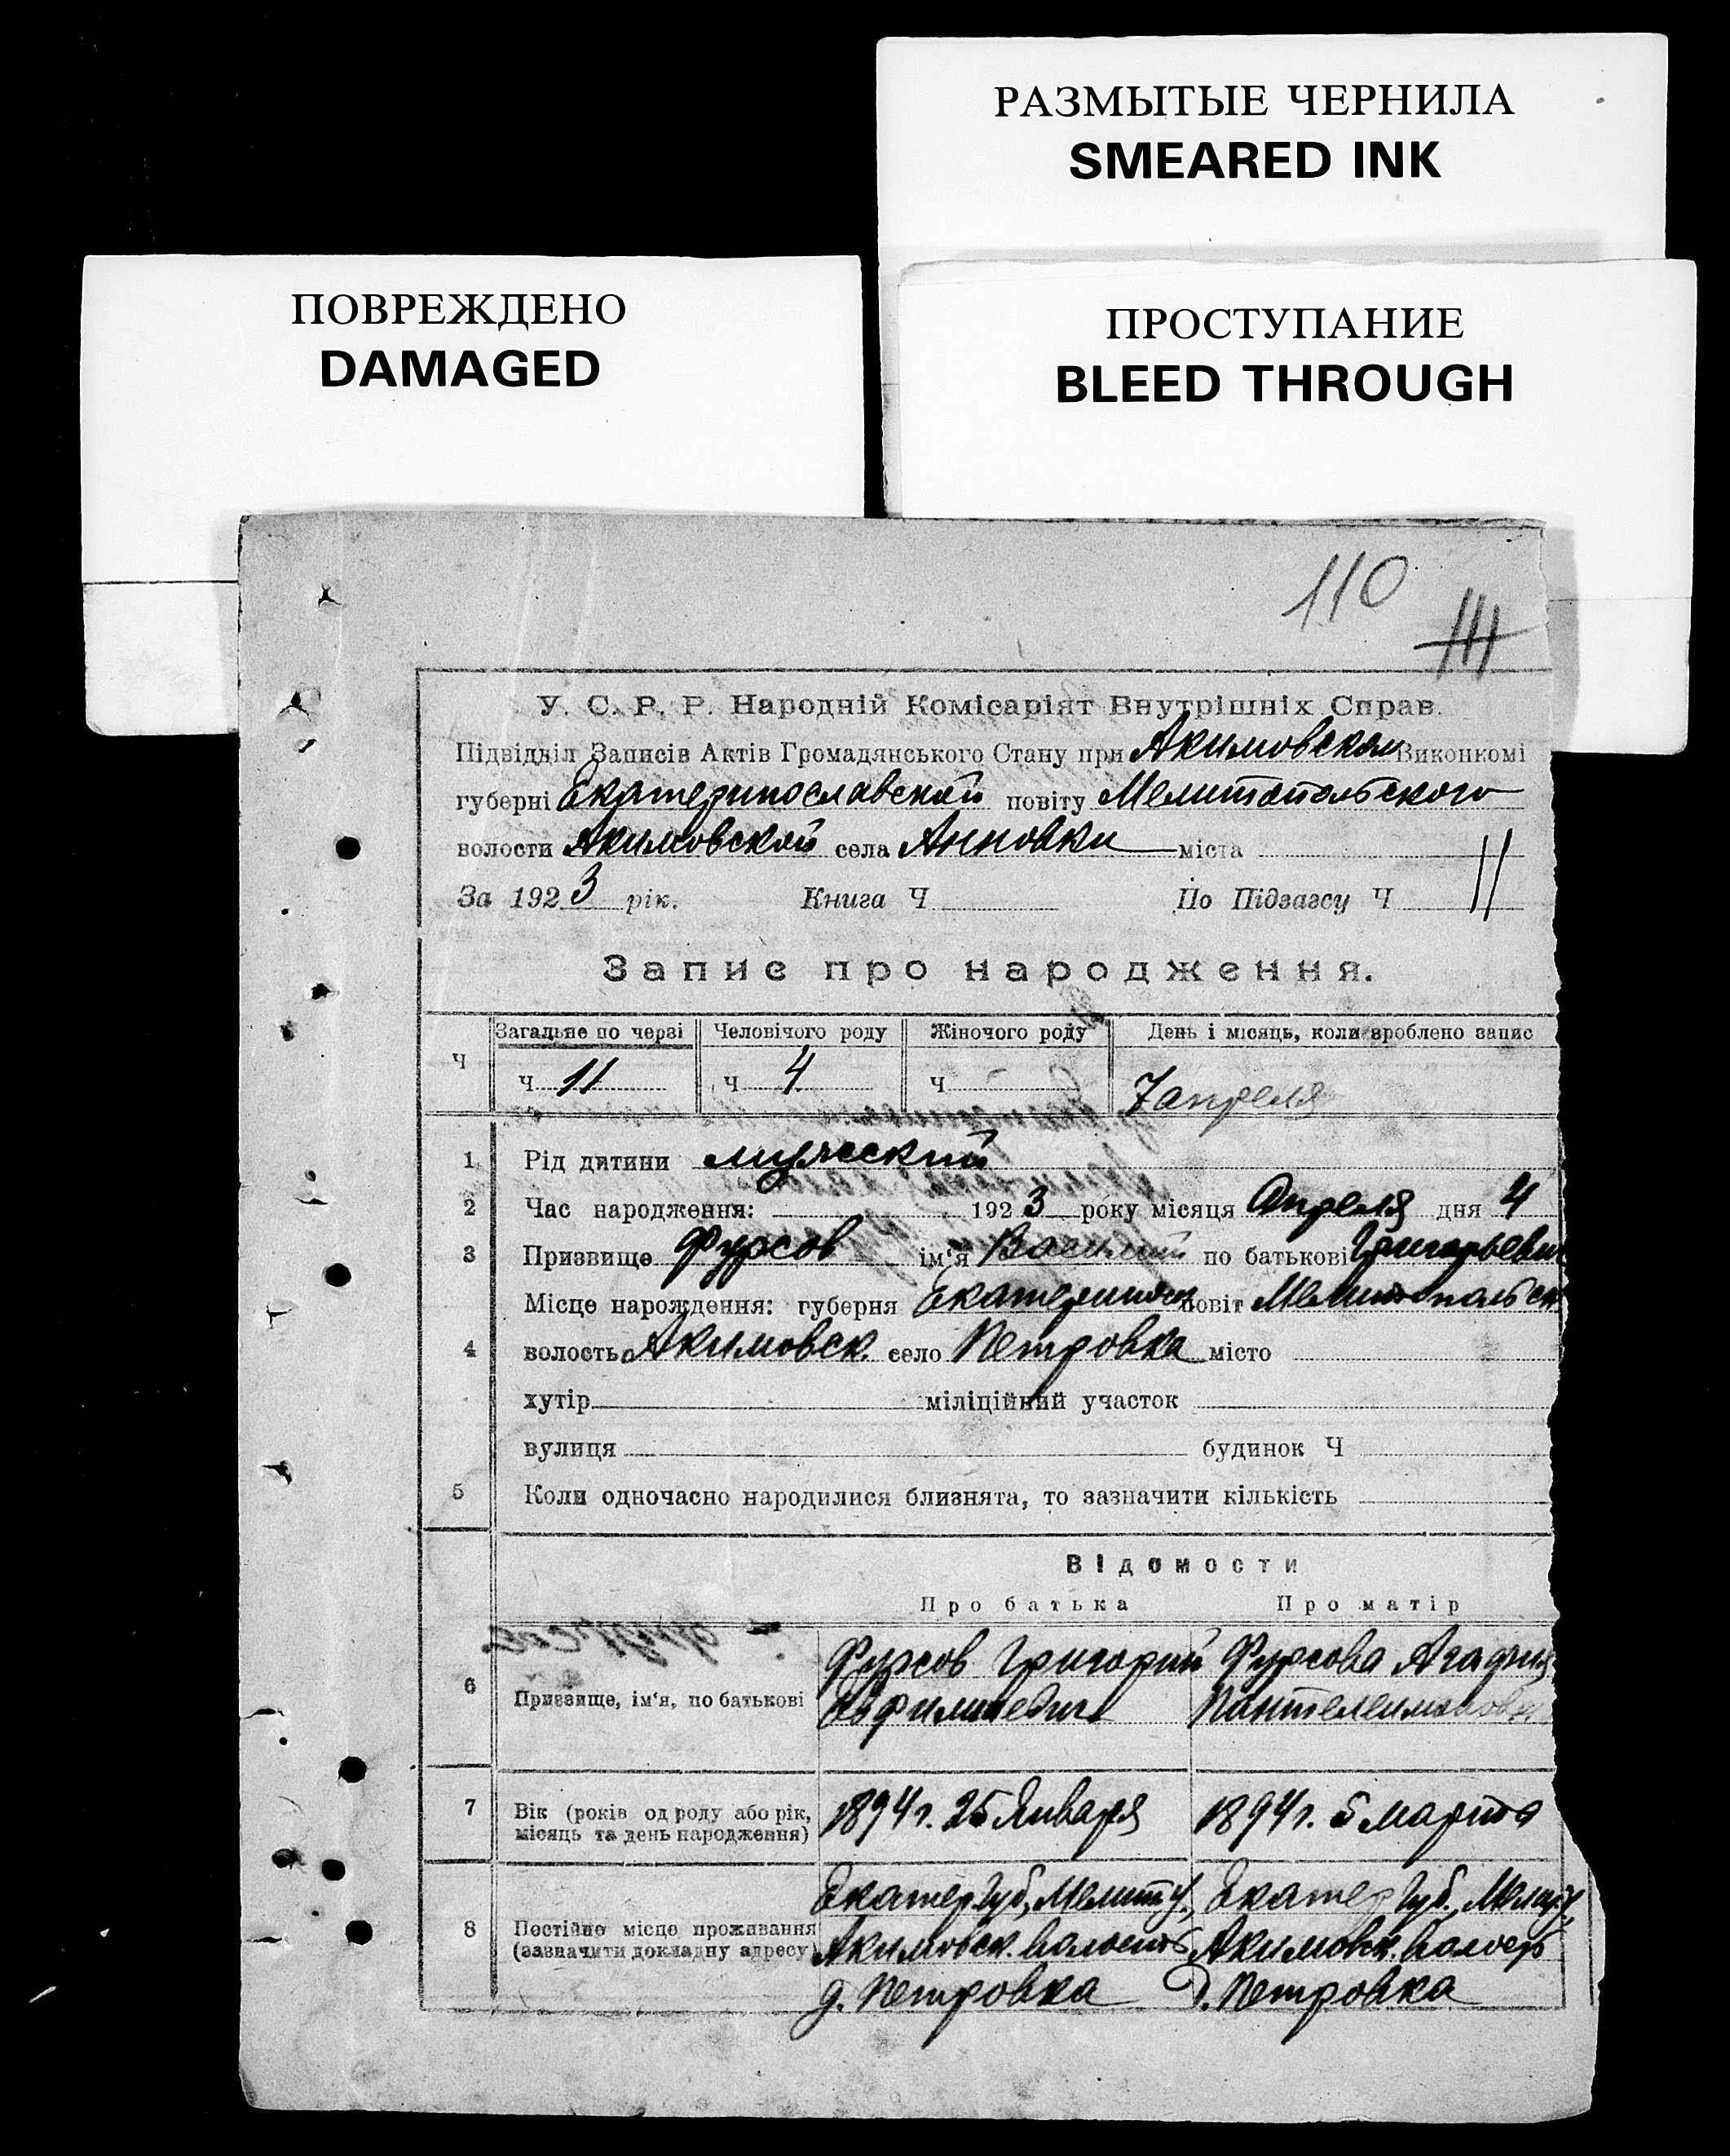 РАЗМЫТЫЕ ЧЕРНИЛА
SMEARED INK
ПОВРЕЖДЕНО
DAMAGED
ПРОСТУПАНИЕ
BLEED THROUGH
110
111
У. С. Р. Р. Народній Комісаріят Внутрішніх Справ.
Підвідділ Записів Актів Громадянського Стану при Акимовском Виконкомі
губерні Екатеринославской повіту Мелитопольского
волости Акимовской села Анновки міста
За 1923 рік. Книга Ч По Підзагсу Ч 11
Запис про народження.
Ч Загальне по черзі Человічого роду Жіночого роду День і місяць, коли зроблено запис
Ч 11 Ч 4 Ч 7 апреля
1 Рід дитини мужеский
2 Час народження: 1923 року місяця Апреля дня 4
3 Призвище Фурсов ім‘я Василий по батькові Григорьевич
Місце народження: губерня Екатериносл повіт Мелитопольск
4 волость Акимовск. село Петровка місто
хутір міліційний участок
вулиця будинок Ч
5 Коли одночасно народилися близнята, то зазначити кількість
Відомости
Про батька Про матір
6 Призвище, ім‘я, по батькові
Фурсов Григорий Фурсова Агафия
Евфимиевич Пантелеимоновна
7 Вік (років од роду або рік, місяць та день народження)
1894 г. 25 Января 1894 г. 5 марта
8 Постійне місце проживання (зазначити докладну адресу)
Екатер. Губ., Мелит. у., Екатер Губ., Мелит. у,
Акимовск. волость Акимовск. волость
д. Петровка д. Петровка